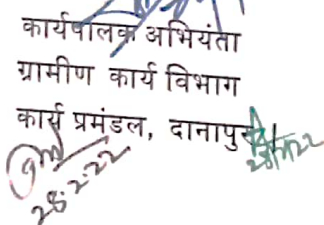 कार्यपालक अभियंता
ग्रामीण कार्य विभाग
कार्य प्रमंडल, दानापुर।
28.2.22